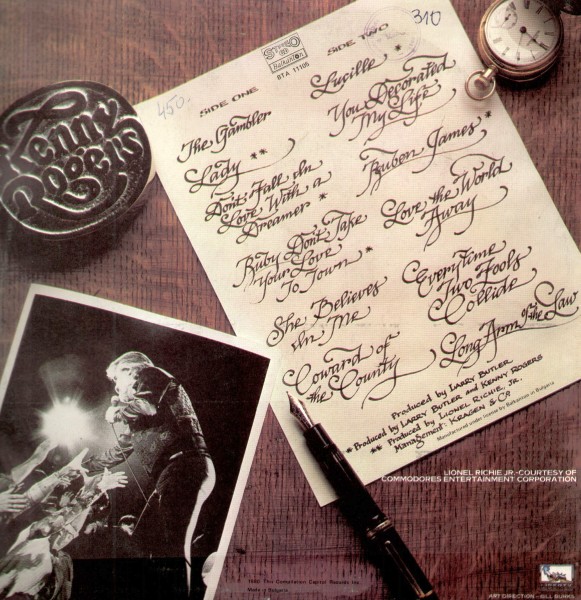 310
450.
STEREO
Balkanton
BTA 11105
SIDE ONE
The Gambler
Lady **
Don't Fall In
Love With a
Dreamer *
Ruby Don't Take
Your Love
To Town *
She Believes
In Me
Coward of
the County
SIDE TWO
Lucille *
You Decorated
My Life
Reuben James *
Love the World
Away
Every Time
Two Fools
Collide
Long Arm of the Law
Produced by LARRY BUTLER
* Produced by LARRY BUTLER and KENNY ROGERS
** Produced by LIONEL RICHIE, JR.
Management: KRAGEN & Co
Manufactured under license by Balkanton in Bulgaria
Kenny
Rogers
LIONEL RICHIE JR.-COURTESY OF
COMMODORES ENTERTAINMENT CORPORATION
1980 This Compilation Capitol Records Inc.
Made in Bulgaria
LIBERTY
ART DIRECTION - BILL BURKS